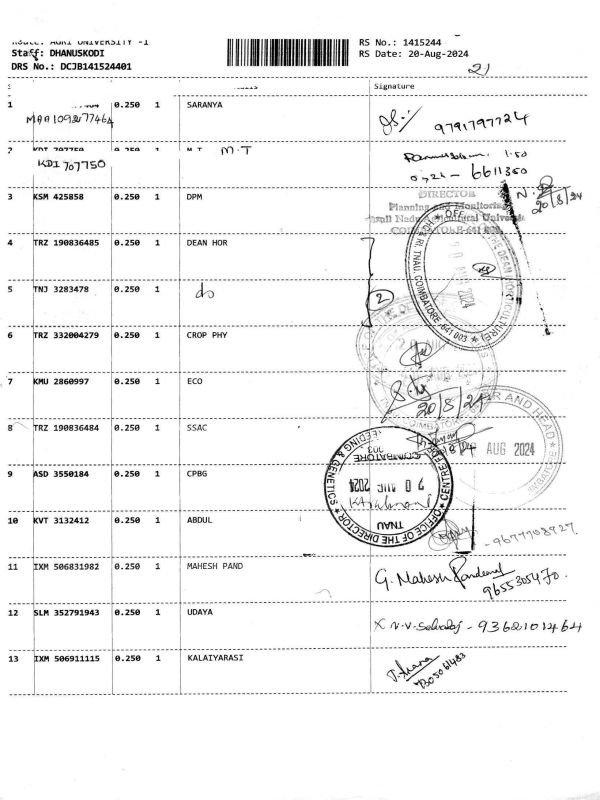 Route: AGRI UNIVERSITY -1
Staff: DHANUSKODI
DRS No.: DCJB141524401
RS No.: 1415244
RS Date: 20-Aug-2024
2)
Signature
1 0.250 1 SARANYA
9791797724
2 KDI 707750 0.250 1 M.T M.T
KDI 707750
6611350
N.
20/8/24
3 KSM 425858 0.250 1 DPM
DIRECTOR
Planning and Monitoring
Tamil Nadu Agricultural University
COIMBATORE-641 003
4 TRZ 190836485 0.250 1 DEAN HOR
5 TNJ 3283478 0.250 1 do
2
TNAU, COIMBATORE-641 003
20 AUG 2024
6 TRZ 332004279 0.250 1 CROP PHY
7 KMU 2860997 0.250 1 ECO
20/8/24
8 TRZ 190836484 0.250 1 SSAC
AND HEAD
AUG 2024
9 ASD 3550184 0.250 1 CPBG
OFFICE OF THE DIRECTOR
BREEDING & GENETICS
COIMBATORE
20 AUG 2024
TNAU
10 KVT 3132412 0.250 1 ABDUL
11 IXM 506831982 0.250 1 MAHESH PAND
G. Mahesh Pandeeswari
9655305470.
12 SLM 352791943 0.250 1 UDAYA
9362101464
13 IXM 506911115 0.250 1 KALAIYARASI
7305061483